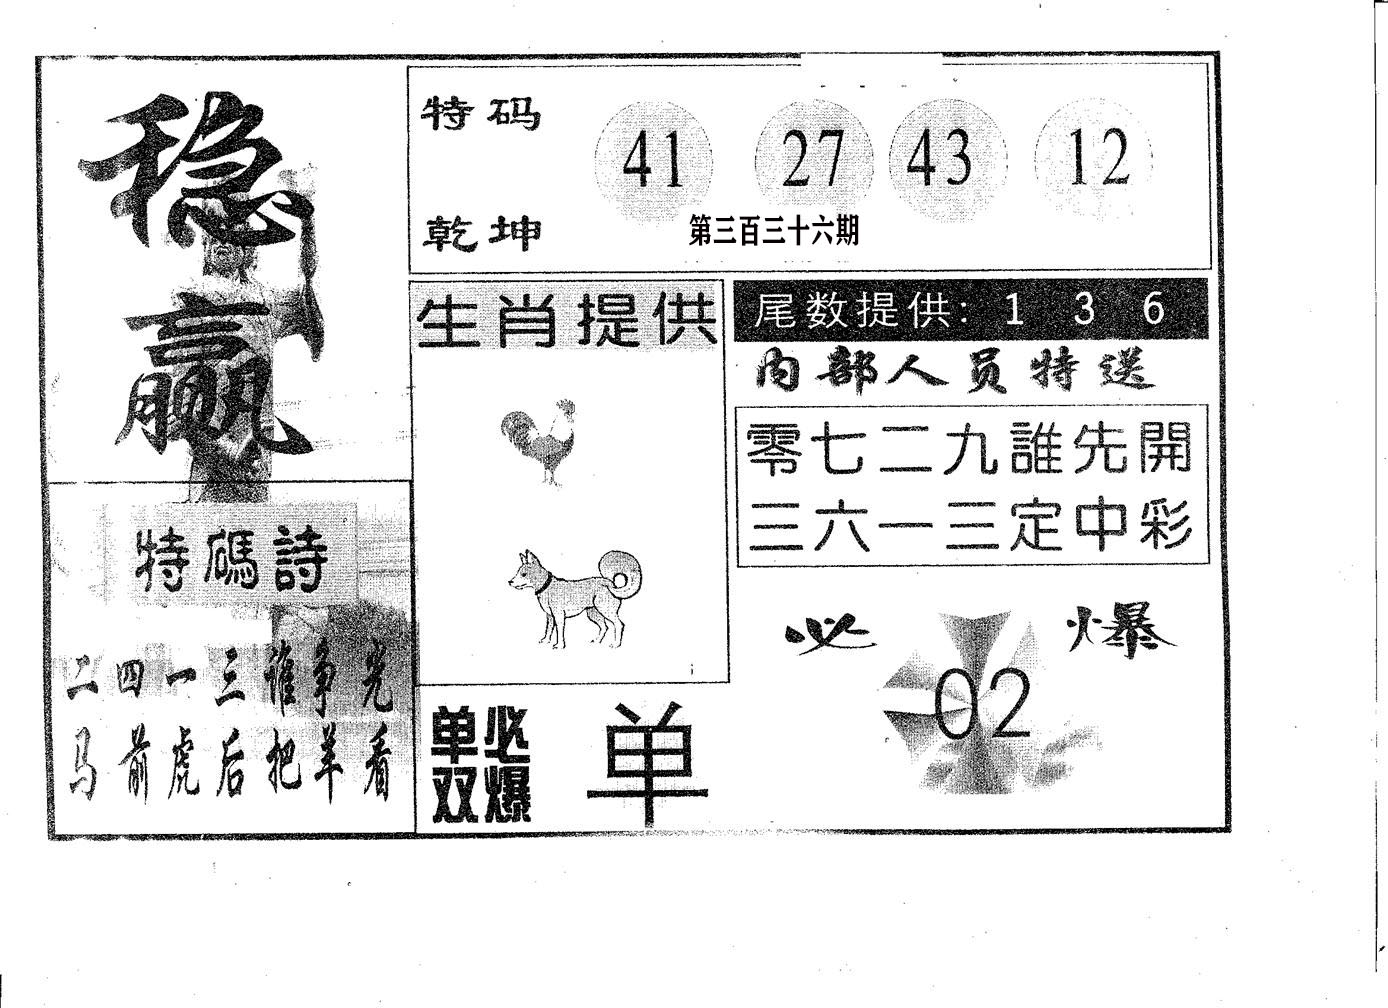 稳
赢
特码
乾坤
41 27 43 12
第三百三十六期
生肖提供
尾数提供: 1 3 6
内部人员特送
零七二九誰先開
三六一三定中彩
特碼詩
二四一三谁争光
马前虎后把羊看
必爆
02
单双
必爆
单